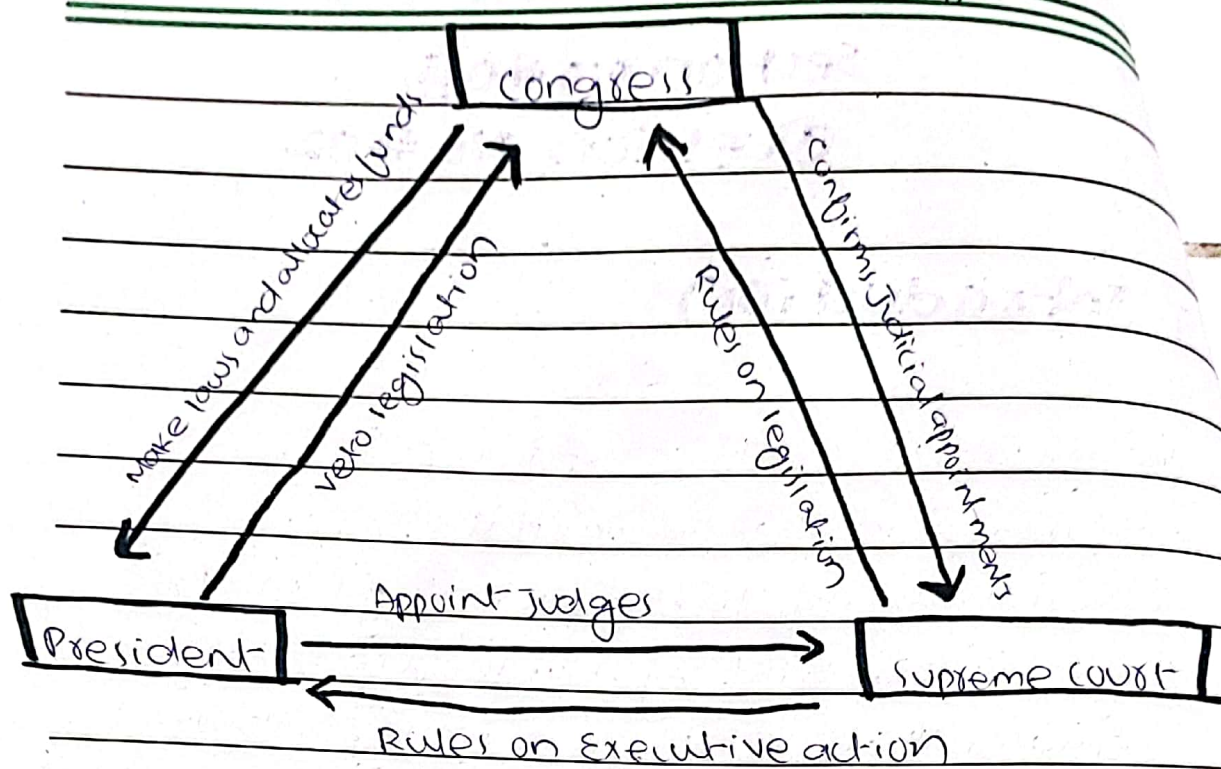 Congress
Make laws and allocates funds
veto legislation
Rules on legislation
confirms Judicial appointments
Appoint Judges
President
Supreme Court
Rules on Executive action